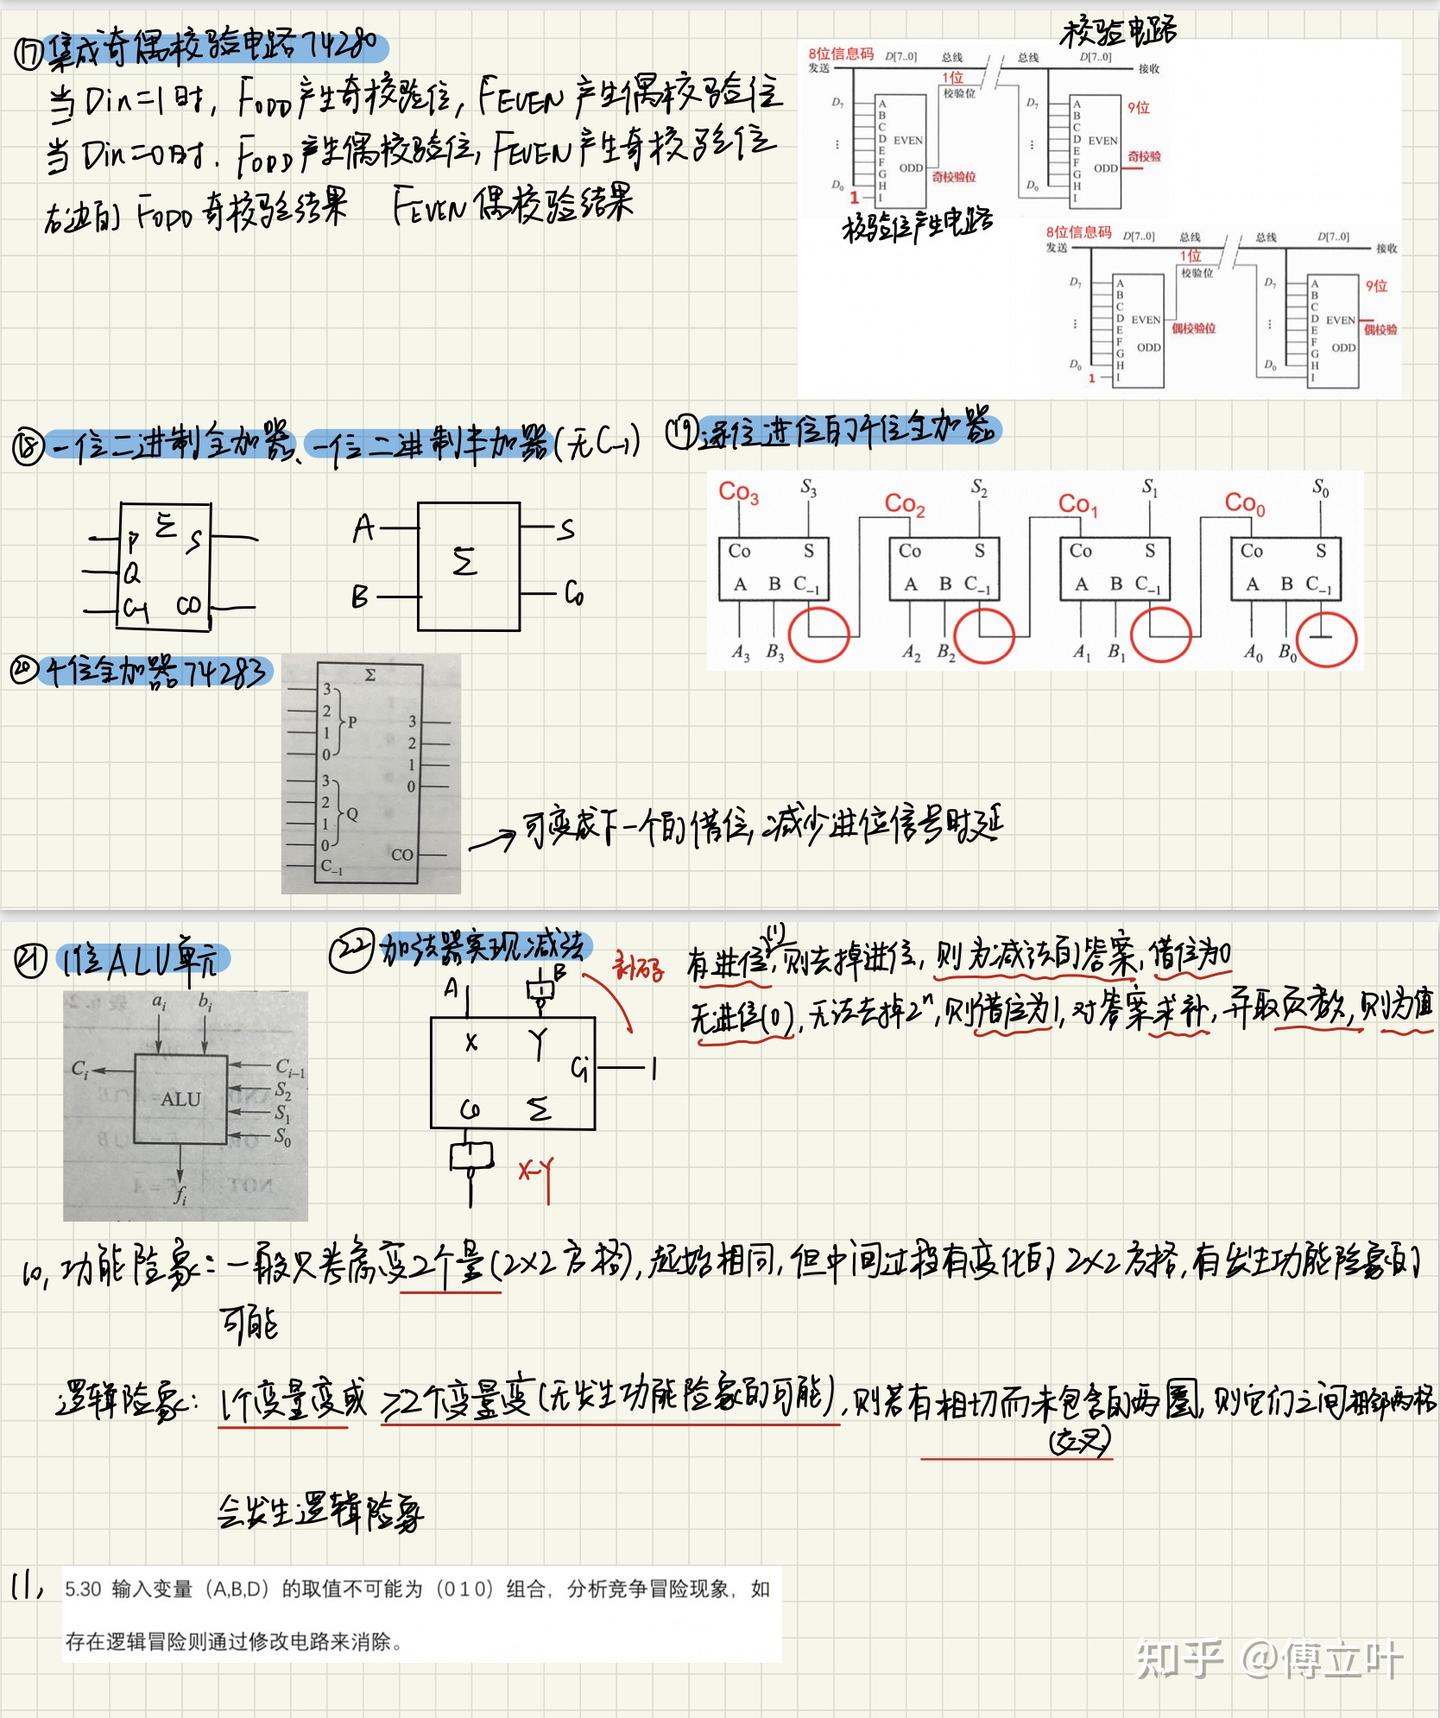 ⑰集成奇偶校验电路74280
当Din=1时，FODD产生奇校验位，FEVEN产生偶校验位
当Din=0时，FODD产生偶校验位，FEVEN产生奇校验位
右边的 FODD奇校验结果 FEVEN偶校验结果
校验电路
8位信息码 D[7..0] 总线 总线 D[7..0]
发送 1位 接收
校验位
D7 A D7 A 9位
B B
C C
⋮ D EVEN ⋮ D EVEN
E E
F ODD F ODD 奇校验
G 奇校验位 G
D0 H D0 H
1 I I
校验位产生电路
8位信息码 D[7..0] 总线 总线 D[7..0]
发送 1位 接收
校验位
D7 A D7 A 9位
B B
C C
⋮ D EVEN 偶校验位 ⋮ D EVEN 偶校验
E E
F ODD F ODD
G G
D0 H D0 H
1 I I
⑱一位二进制全加器、一位二进制半加器(无C-1)
Σ
P S
Q
C-1 CO
A Σ S
B C0
⑲逐位进位的4位全加器
Co3 S3 Co2 S2 Co1 S1 Co0 S0
Co S Co S Co S Co S
A B C-1 A B C-1 A B C-1 A B C-1
A3 B3 A2 B2 A1 B1 A0 B0
⑳4位全加器74283
Σ
3
2 P 3
1 2
0 1
3 0
2 Q
1
0 CO
C-1
→可变成下一个的借位，减少进位信号时延
㉑ 1位ALU单元
ai bi
Ci Ci-1
ALU S2
S1
S0
fi
㉒加法器实现减法
A B 补码
X Y
Ci 1
CO Σ
1
X-Y
有进位(1)，则去掉进位，则为减法的答案，借位为0
无进位(0)，无法去掉2ⁿ，则借位为1，对答案求补，并取负数，则为值
10，功能险象：一般只考虑变2个量(2×2方格)，起始相同，但中间过程有变化的2×2方格，有发生功能险象的
可能
逻辑险象：1个变量变或≥2个变量变(无发生功能险象的可能)，则若有相切而未包含的两圈，则它们之间相邻两格
(交叉)
会发生逻辑险象
11，
5.30 输入变量（A,B,D）的取值不可能为（0 1 0）组合，分析竞争冒险现象，如
存在逻辑冒险则通过修改电路来消除。
知乎 @傅立叶